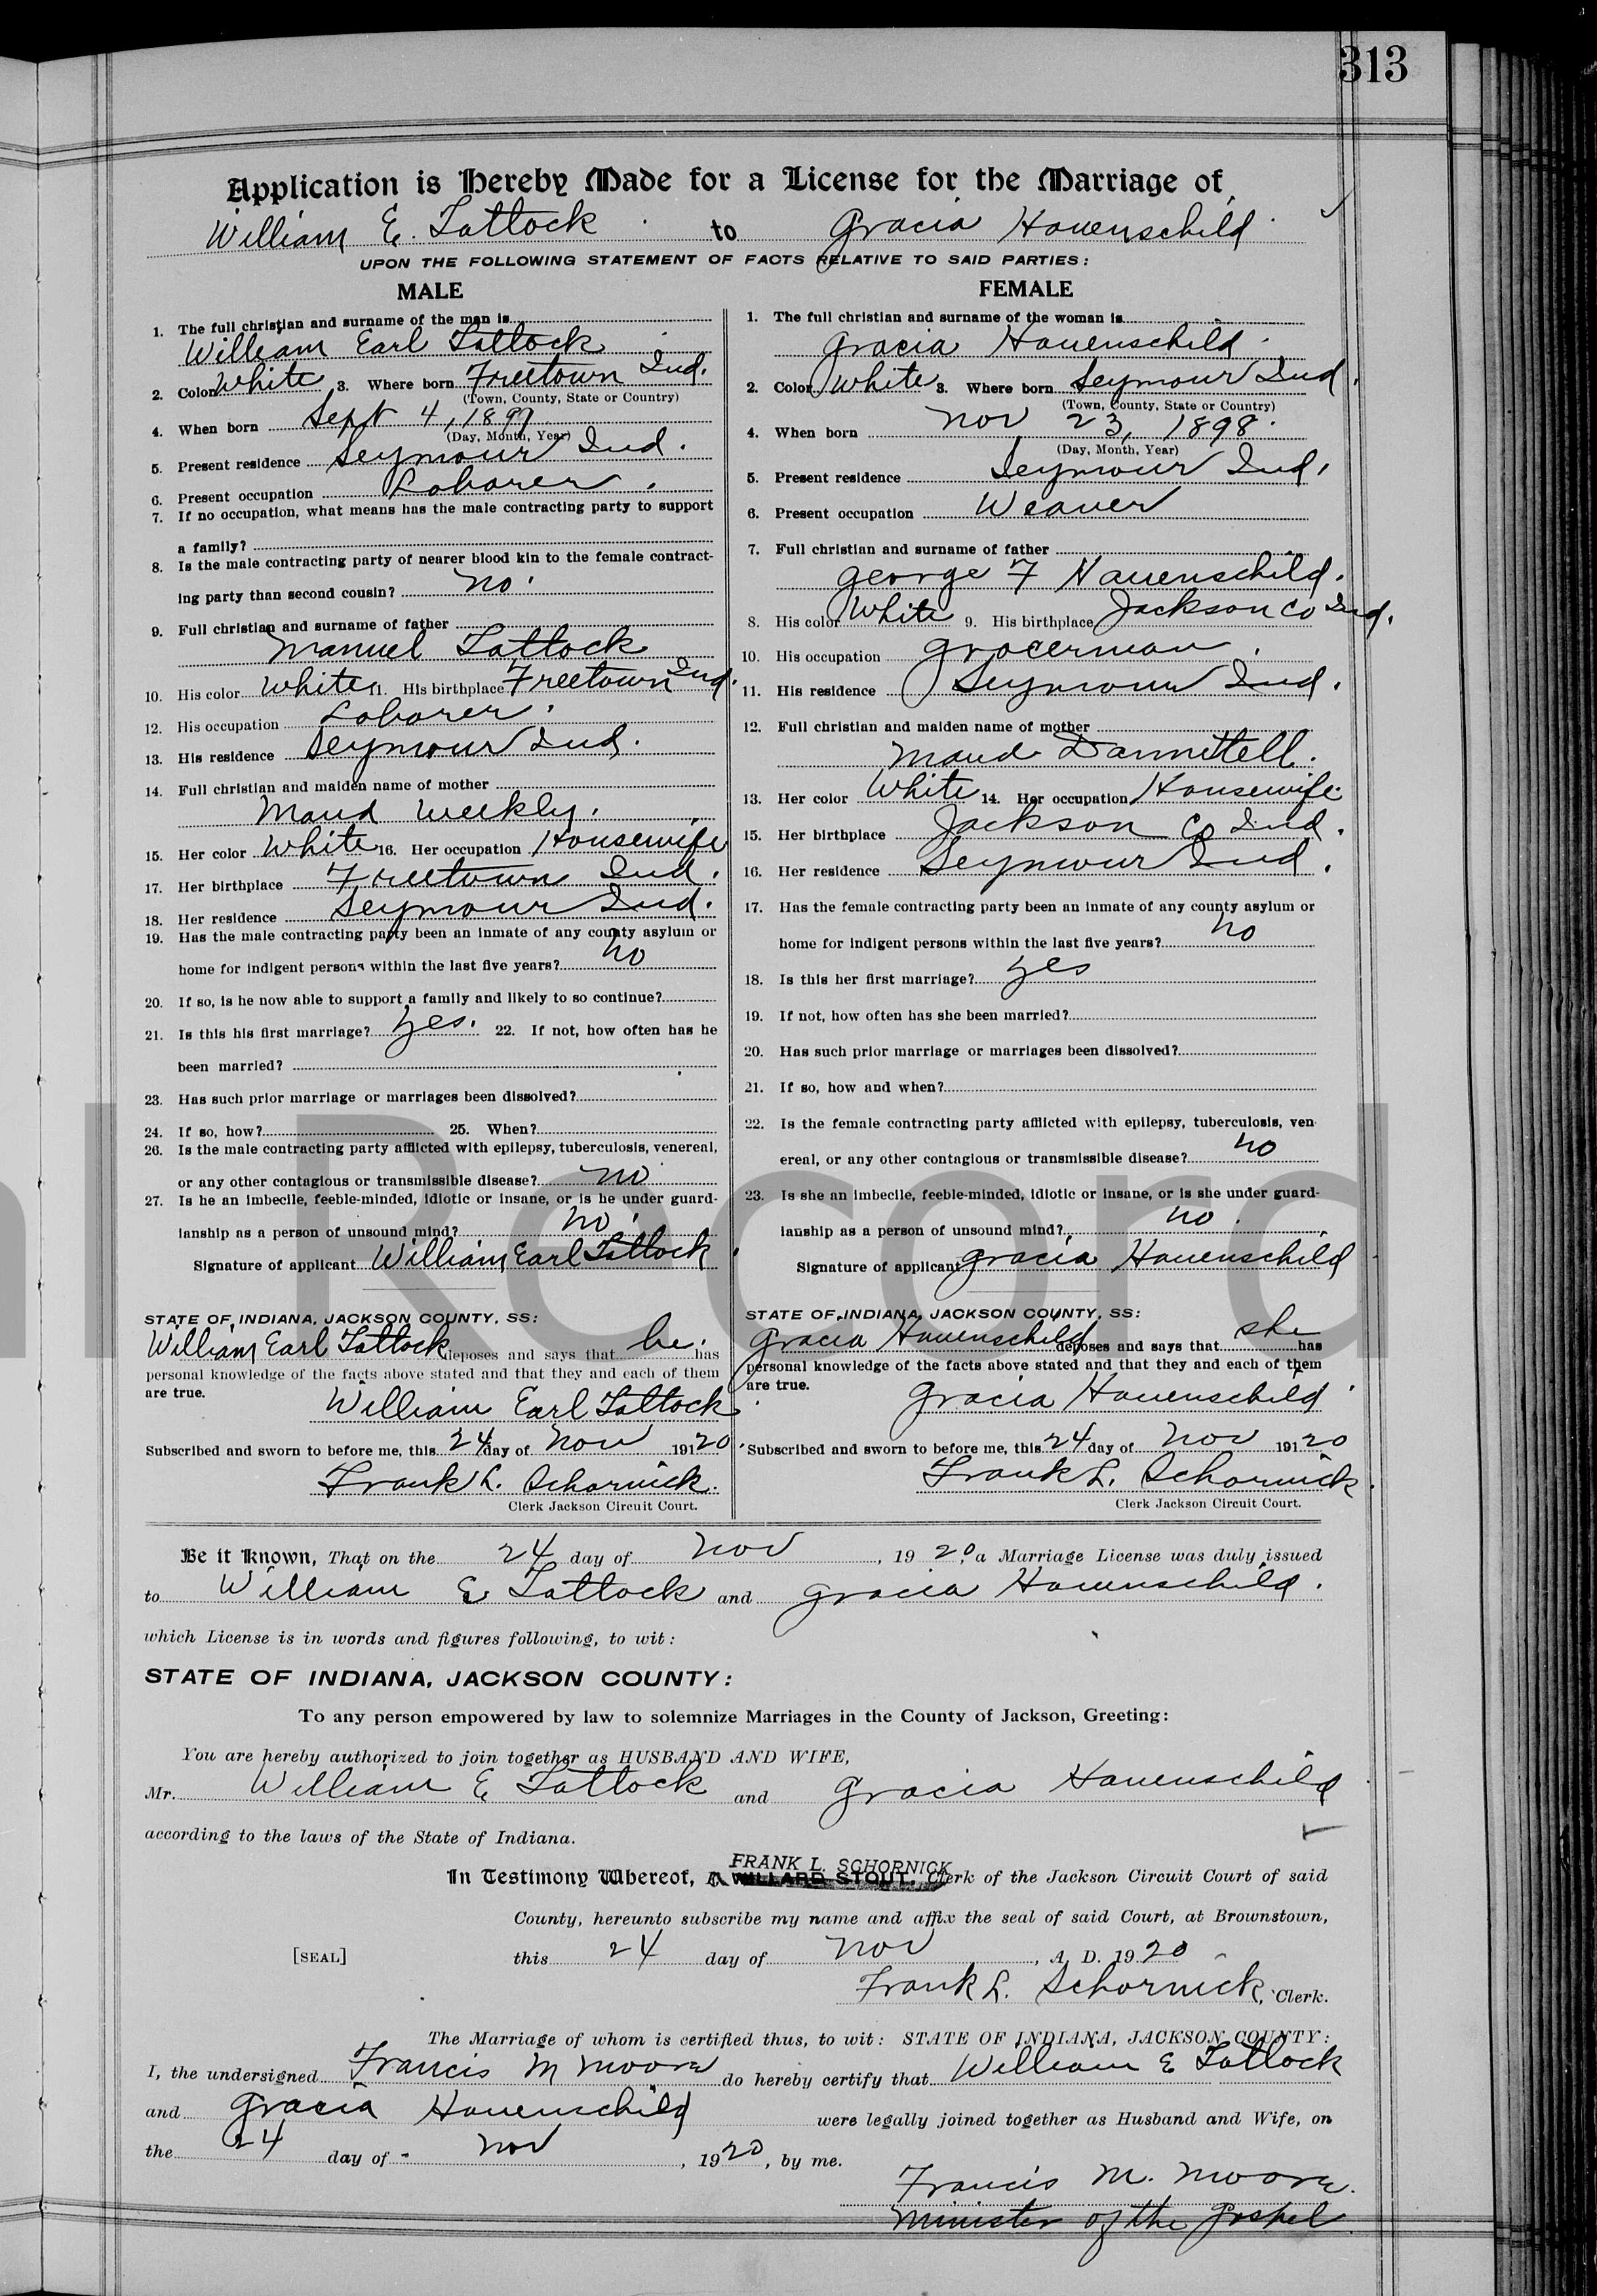 313
Application is Hereby Made for a License for the Marriage of
William E. Tatlock to Gracia Hauenschild
UPON THE FOLLOWING STATEMENT OF FACTS RELATIVE TO SAID PARTIES:
MALE
1. The full christian and surname of the man is
William Earl Tatlock
2. Color White 3. Where born Freetown Ind.
(Town, County, State or Country)
4. When born Sept 4, 1899
(Day, Month, Year)
5. Present residence Seymour Ind.
6. Present occupation Laborer.
7. If no occupation, what means has the male contracting party to support
a family?
8. Is the male contracting party of nearer blood kin to the female contract-
ing party than second cousin? no
9. Full christian and surname of father
Manuel Tatlock
10. His color White 11. His birthplace Freetown Ind.
12. His occupation Laborer.
13. His residence Seymour Ind.
14. Full christian and maiden name of mother
Maud Weekly.
15. Her color White 16. Her occupation Housewife
17. Her birthplace Freetown Ind.
18. Her residence Seymour Ind.
19. Has the male contracting party been an inmate of any county asylum or
home for indigent persons within the last five years? no
20. If so, is he now able to support a family and likely to so continue?
21. Is this his first marriage? Yes. 22. If not, how often has he
been married?
23. Has such prior marriage or marriages been dissolved?
24. If so, how? 25. When?
26. Is the male contracting party afflicted with epilepsy, tuberculosis, venereal,
or any other contagious or transmissible disease? no
27. Is he an imbecile, feeble-minded, idiotic or insane, or is he under guard-
ianship as a person of unsound mind? no
Signature of applicant William Earl Tatlock
STATE OF INDIANA, JACKSON COUNTY, SS:
William Earl Tatlock deposes and says that he has
personal knowledge of the facts above stated and that they and each of them
are true.
William Earl Tatlock
Subscribed and sworn to before me, this 24 day of Nov 191 20
Frank L. Schornick.
Clerk Jackson Circuit Court.
FEMALE
1. The full christian and surname of the woman is
Gracia Hauenschild
2. Color White 3. Where born Seymour Ind.
(Town, County, State or Country)
4. When born Nov 23, 1898
(Day, Month, Year)
5. Present residence Seymour Ind.
6. Present occupation Weaver
7. Full christian and surname of father
George F Hauenschild.
8. His color White 9. His birthplace Jackson Co Ind.
10. His occupation Grocerman
11. His residence Seymour Ind.
12. Full christian and maiden name of mother
Maud Dannettell.
13. Her color White 14. Her occupation Housewife
15. Her birthplace Jackson Co Ind.
16. Her residence Seymour Ind.
17. Has the female contracting party been an inmate of any county asylum or
home for indigent persons within the last five years? no
18. Is this her first marriage? yes
19. If not, how often has she been married?
20. Has such prior marriage or marriages been dissolved?
21. If so, how and when?
22. Is the female contracting party afflicted with epilepsy, tuberculosis, ven-
ereal, or any other contagious or transmissible disease? no
23. Is she an imbecile, feeble-minded, idiotic or insane, or is she under guard-
ianship as a person of unsound mind? no
Signature of applicant Gracia Hauenschild
STATE OF INDIANA, JACKSON COUNTY, SS:
Gracia Hauenschild deposes and says that she has
personal knowledge of the facts above stated and that they and each of them
are true.
Gracia Hauenschild
Subscribed and sworn to before me, this 24 day of Nov 191 20
Frank L. Schornick
Clerk Jackson Circuit Court.
Be it Known, That on the 24 day of Nov, 19 20, a Marriage License was duly issued
to William E Tatlock and Gracia Hauenschild.
which License is in words and figures following, to wit:
STATE OF INDIANA, JACKSON COUNTY:
To any person empowered by law to solemnize Marriages in the County of Jackson, Greeting:
You are hereby authorized to join together as HUSBAND AND WIFE,
Mr. William E Tatlock and Gracia Hauenschild
according to the laws of the State of Indiana.
FRANK L. SCHORNICK
In Testimony Whereof, I, WILLARD STOUT, Clerk of the Jackson Circuit Court of said
County, hereunto subscribe my name and affix the seal of said Court, at Brownstown,
[SEAL] this 24 day of Nov, A. D. 19 20
Frank L. Schornick, Clerk.
The Marriage of whom is certified thus, to wit: STATE OF INDIANA, JACKSON COUNTY:
I, the undersigned Francis M Moore do hereby certify that William E Tatlock
and Gracia Hauenschild were legally joined together as Husband and Wife, on
the 24 day of Nov, 19 20, by me.
Francis M. Moore.
Minister of the Gospel
Record